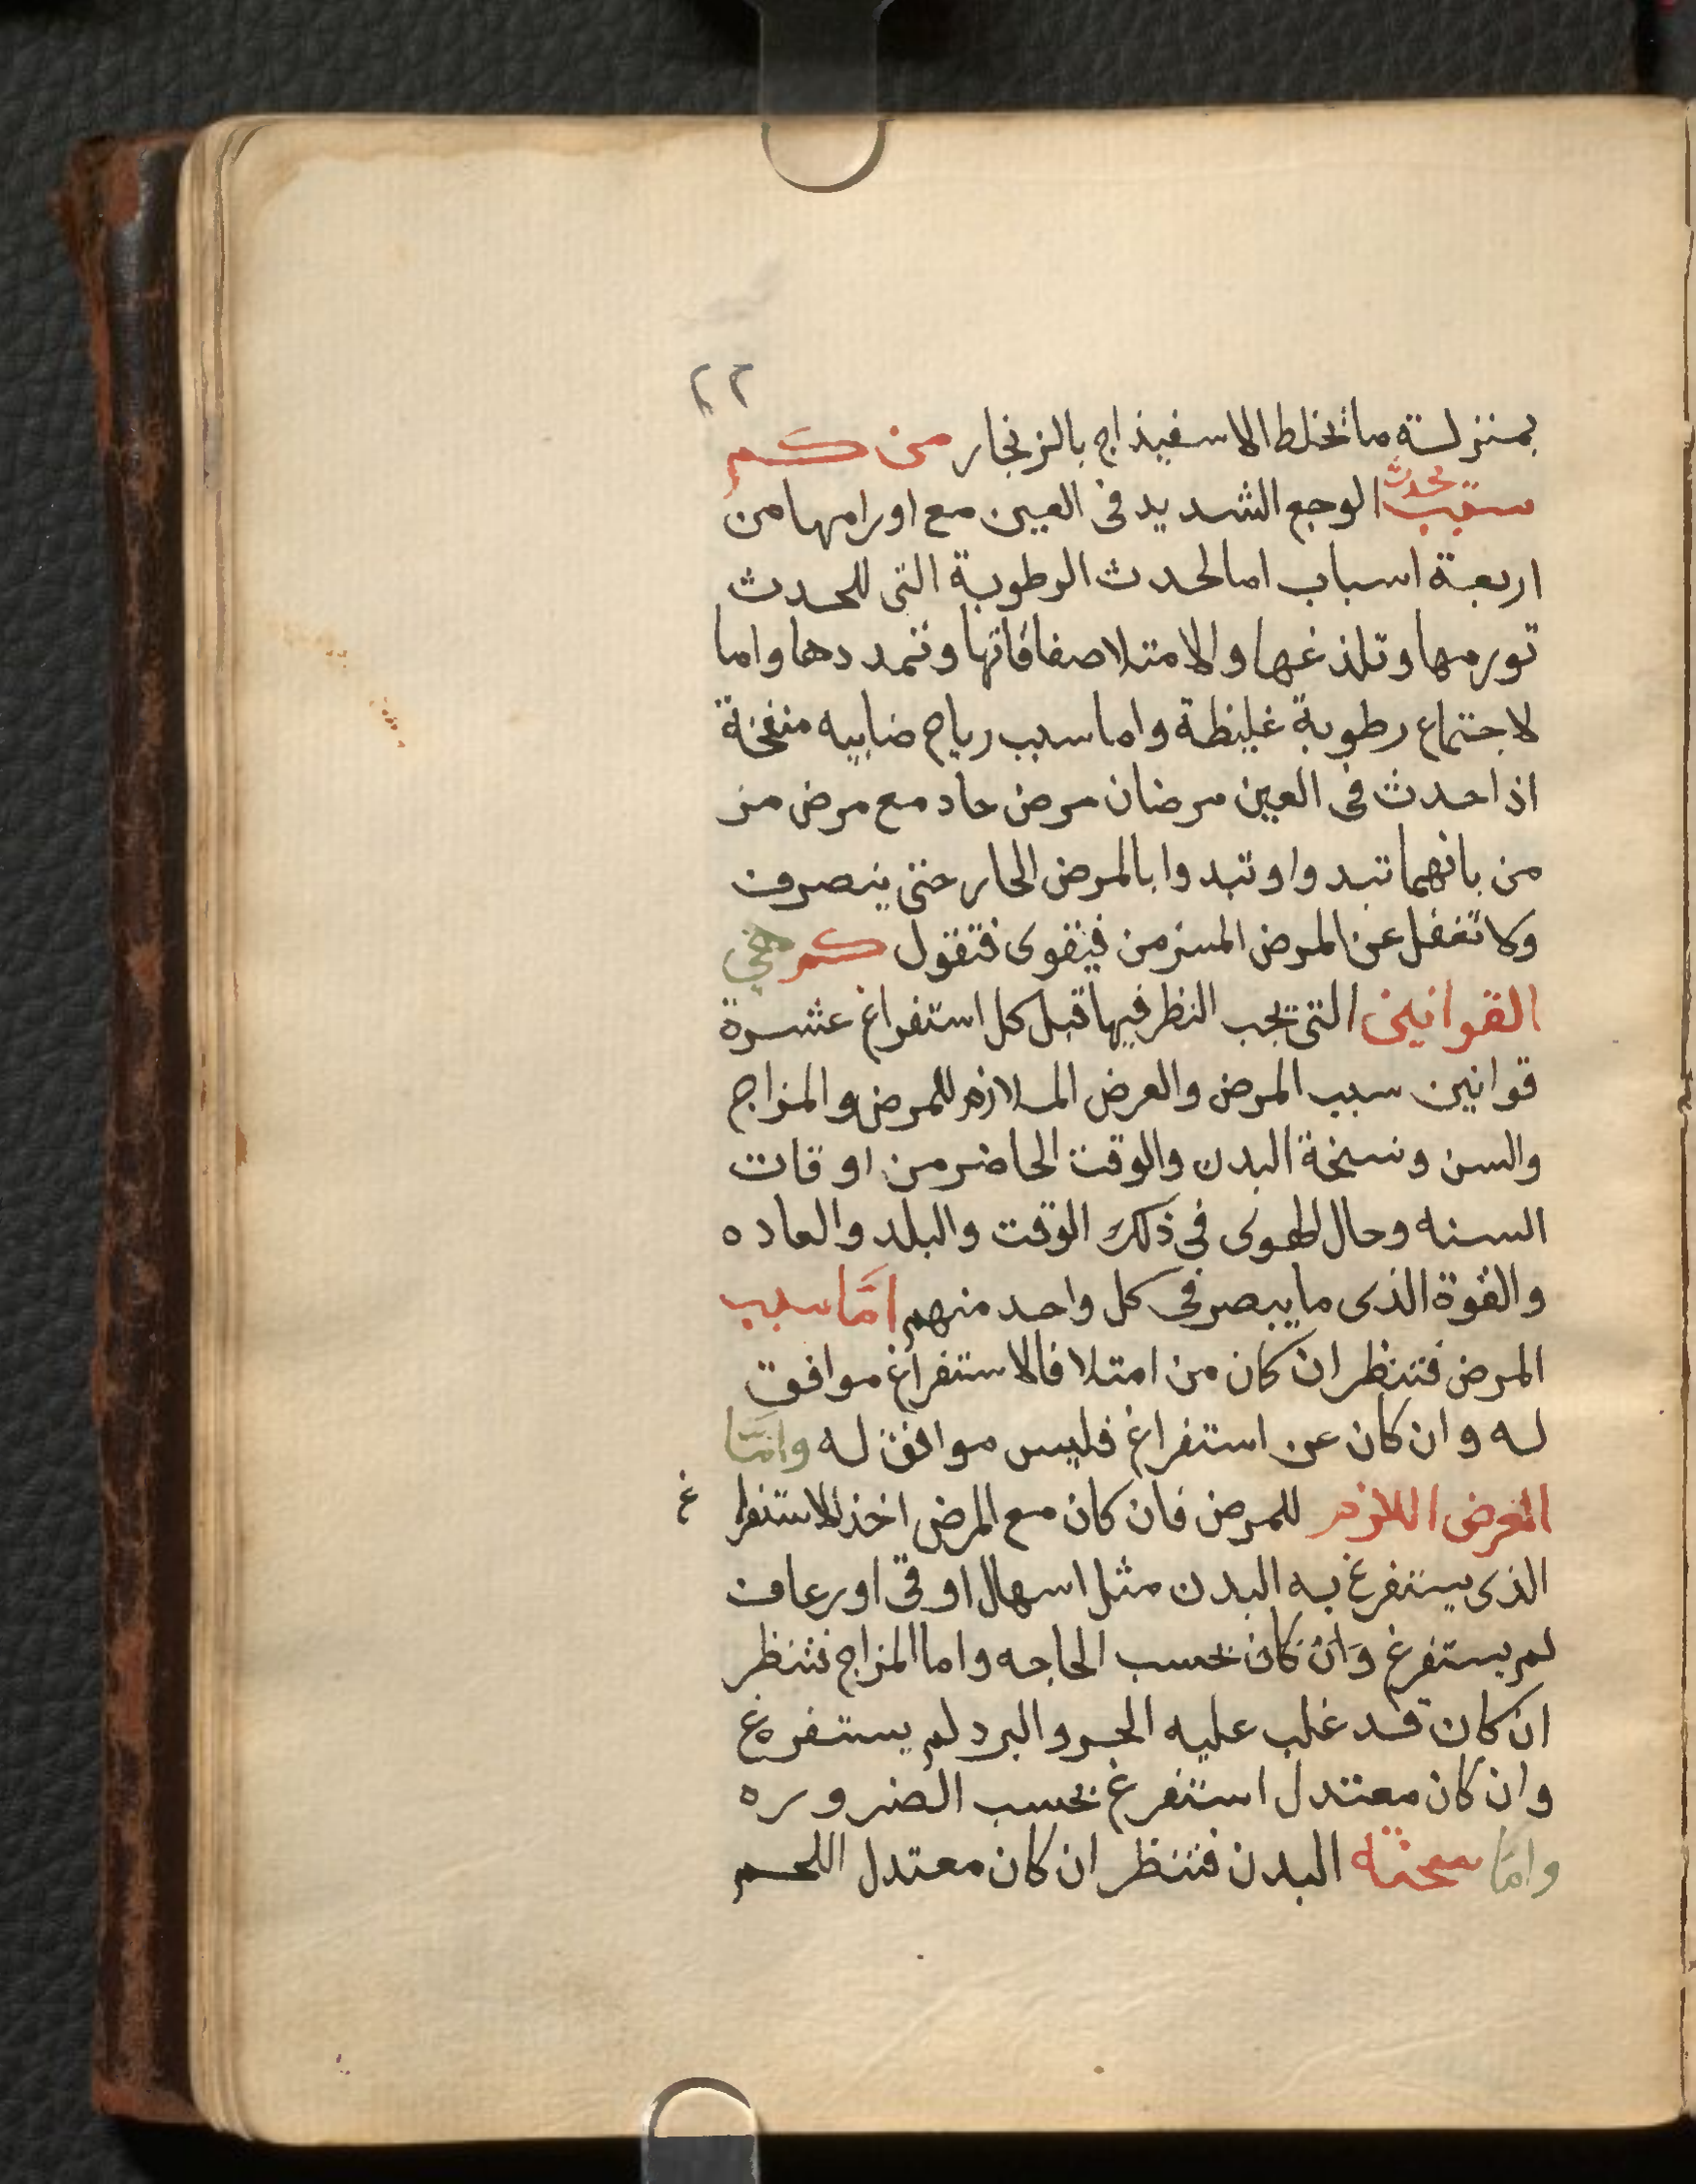 ٢٢
بمنزلة ما تخلط الاسفيذاج بالزنجار من كم
سبب يحدث الوجع الشديد في العين مع اورامها من
اربعة اسباب اما لحدث الرطوبة التى للحدث
تورمها وتلذغها والامتلا صفاقاتها وتمددها واما
لاجتماع رطوبة غليظة واما سبب رياح ضابيه منفخة
اذا حدث فى العين مرضان مرض حاد مع مرض مز
من بانهما تبدوا وتبدوا بالمرض الحار حتى ينصرف
وكا تغفل عن المرض المزمن فيتقوى فتقول كم هي
القوانين التى يجب النظر فيها قبل كل استفراغ عشرة
قوانين سبب المرض والعرض الملازم للمرض والمزاج
والسن وسخنة البدن والوقت الحاضر من اوقات
السنه وحال لهوى في ذلك الوقت والبلد والعاده
والقوة الذى ما يبصر في كل واحد منهم امّا سبب
المرض فتنظر ان كان من امتلا فالاستفراغ موافق
له وان كان عن استفراغ فليس موافق له وامّا
العرض اللازم للمرض فان كان مع المرض اخذ للاستفراغ
الذى يستفرغ به البدن مثل اسهال او قى او رعاف
لم يستفرغ وَان كان بحسب الحاجه واما المزاج فتنظر
ان كان قد غلب عليه الحر والبرد لم يستفرغ
وان كان معتدل استفرغ بحسب الضروره
وامّا سحنة البدن فتنظر ان كان معتدل اللحم